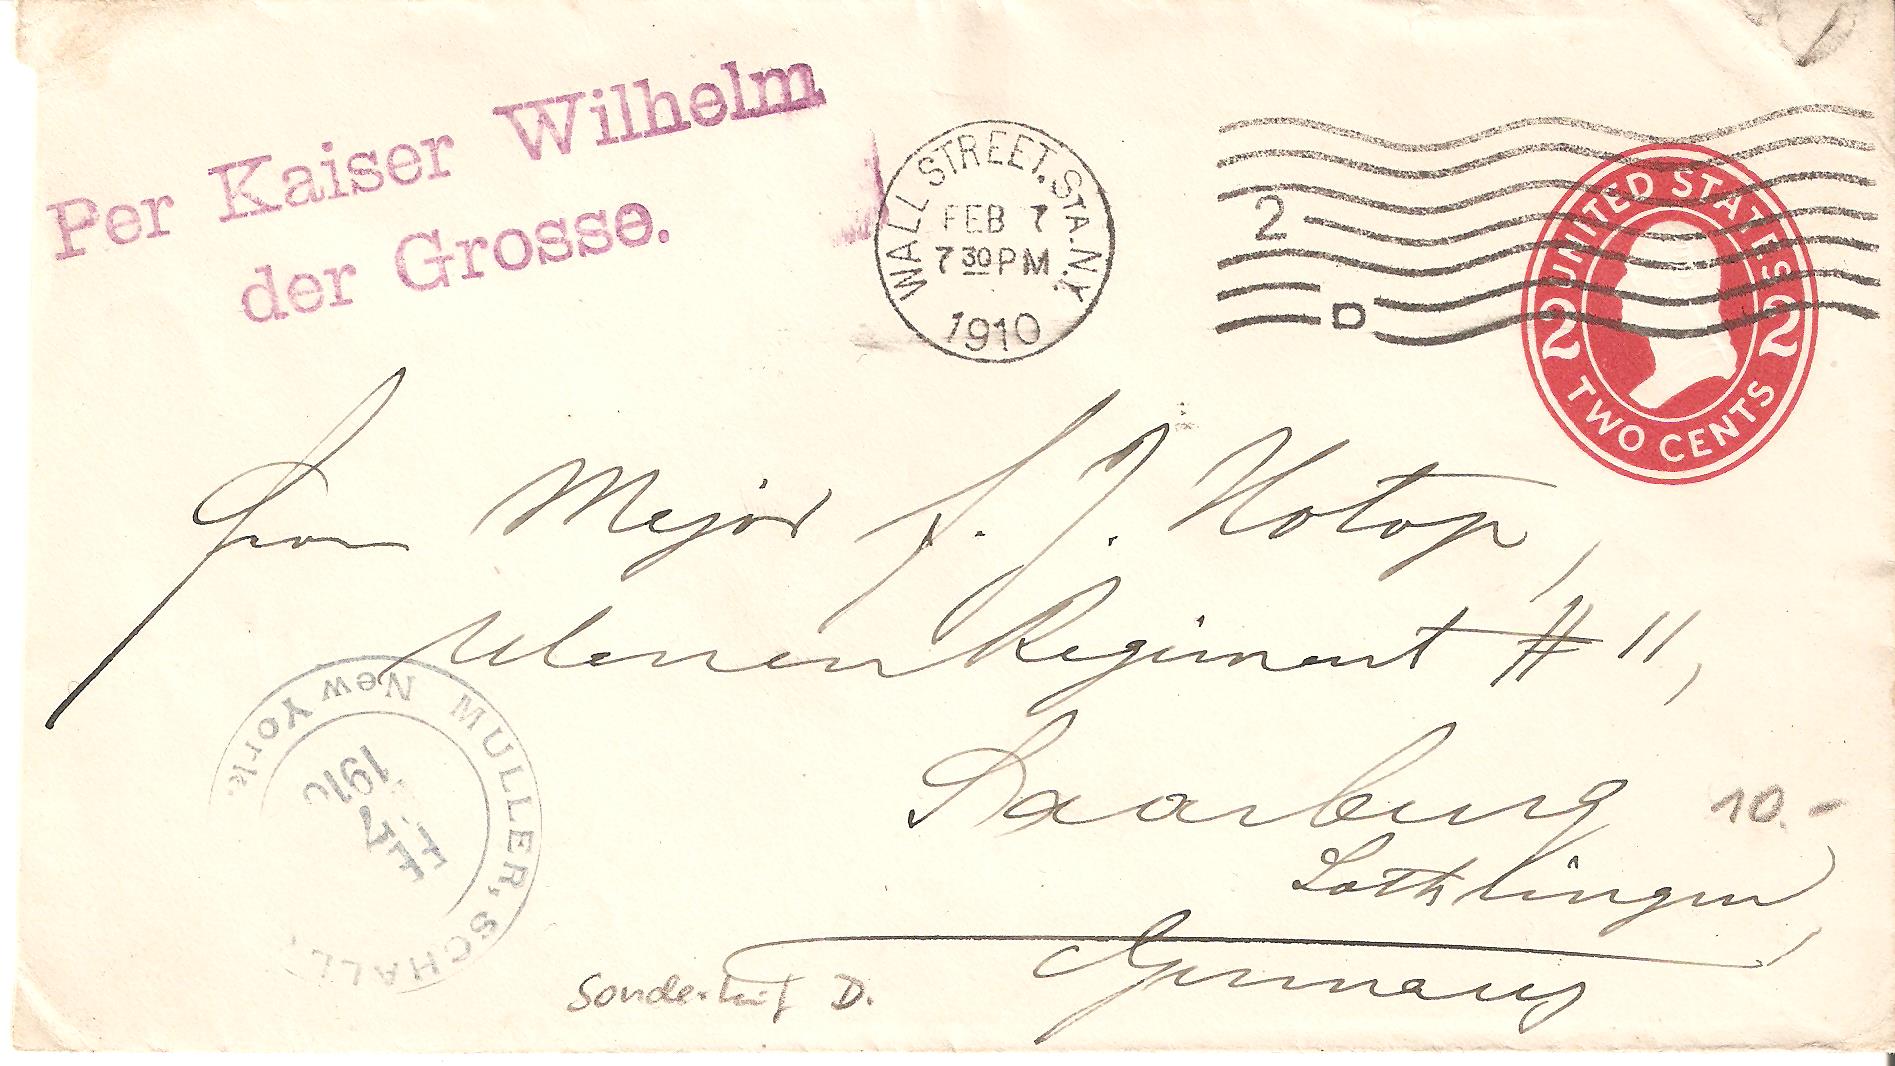 Per Kaiser Wilhelm
der Grosse.
WALL STREET. STA. N.Y.
FEB 7
7 30 PM
1910
2
D
UNITED STATES
2 2
TWO CENTS
Major F. J. Notop,
Ulanen Regiment # 11,
Saarburg
Lothringen
Germany
10.-
MULLER, SCHALL
New York.
FE 7
1910
D.